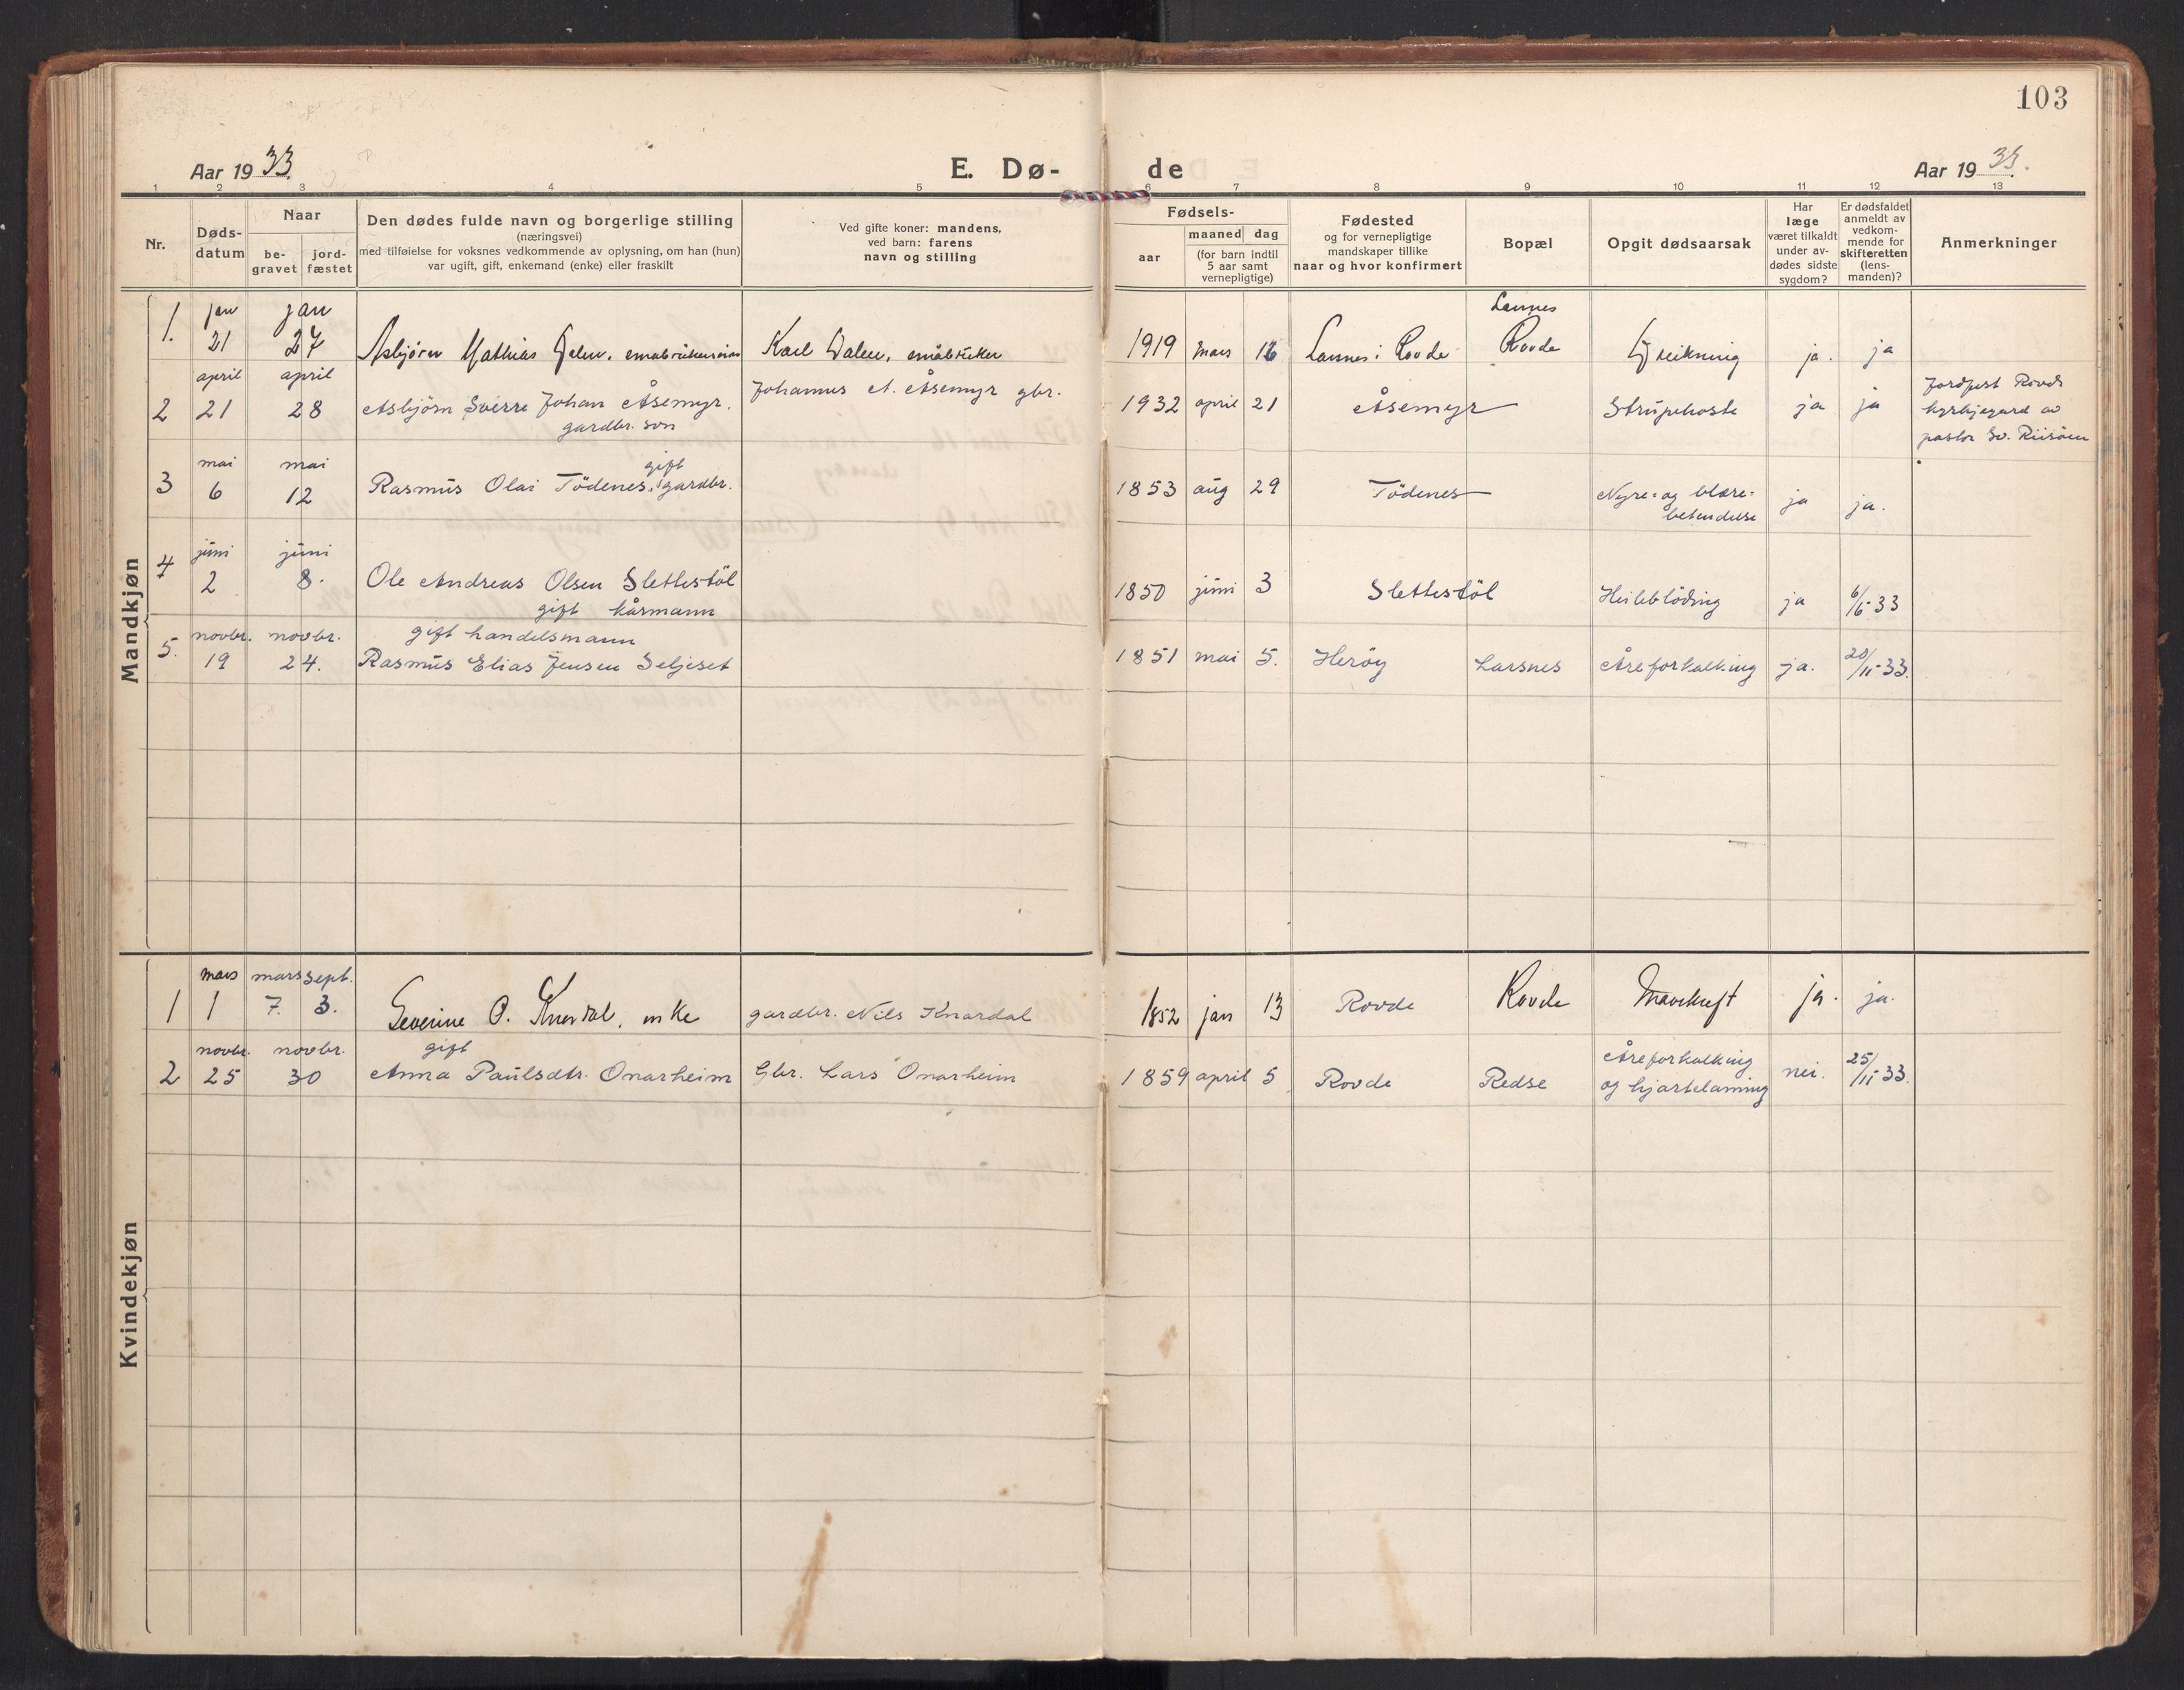 103
Aar 1933.
E. Dø-
de
Aar 1933.
1 2 3 4 5 6 7 8 9 10 11 12 13
Nr.
Døds-
datum
Naar
be-
gravet
jord-
fæstet
Den dødes fulde navn og borgerlige stilling
(næringsvei)
med tilføielse for voksnes vedkommende av oplysning, om han (hun)
var ugift, gift, enkemand (enke) eller fraskilt
Ved gifte koner: mandens,
ved barn: farens
navn og stilling
Fødsels-
aar
maaned dag
(for barn indtil
5 aar samt
vernepligtige)
Fødested
og for vernepligtige
mandskaper tillike
naar og hvor konfirmert
Bopæl
Opgit dødsaarsak
Har
læge
været tilkaldt
under av-
dødes sidste
sygdom?
Er dødsfaldet
anmeldt av
vedkom-
mende for
skifteretten
(lens-
manden)?
Anmerkninger
Mandkjøn
jan jan Lannes
1. 21 27 Asbjörn Mathias Dalen, Karl Dalen, småbruker 1919 mars 16 Lannes i Rovde Rovde ja. ja
april april Johannes A. Åsemyr gbr.
2 21 28 Asbjörn Sverre Johan Åsemyr. 1932 april 21 Åsemyr Strupehoste ja ja
gardbr. son
Jordfest Rovde
kyrkjegard av
pastor Sv. Riisöen
mai mai gift
3 6 12 Rasmus Olai Tödenes, gardbr. 1853 aug 29 Tödenes Nyre- og blære- ja ja.
betendelse
juni juni
4 2 8. Ole Andreas Olsen Slettestöl 1850 juni 3 Slettestöl Heileblöding ja 6/6-33
gift kårmann
novbr. novbr. gift handelsmann
5. 19 24. Rasmus Elias Jensen Seljeset 1851 mai 5. Heröy Larsnes Åreforkalking ja. 20/11-33.
Kvindekjøn
mars mars sept.
1 1 7. 3. Severine O. Knardal, enke gardbr. Nils Knardal 1852 jan 13 Rovde Rovde Mavekreft ja. ja.
novbr. novbr. gift
2 25 30 Anna Paulsdtr. Onarheim Gbr. Lars Onarheim 1859 april 5 Rovde Redse Åreforkalking nei. 25/11-33.
og hjartelaming